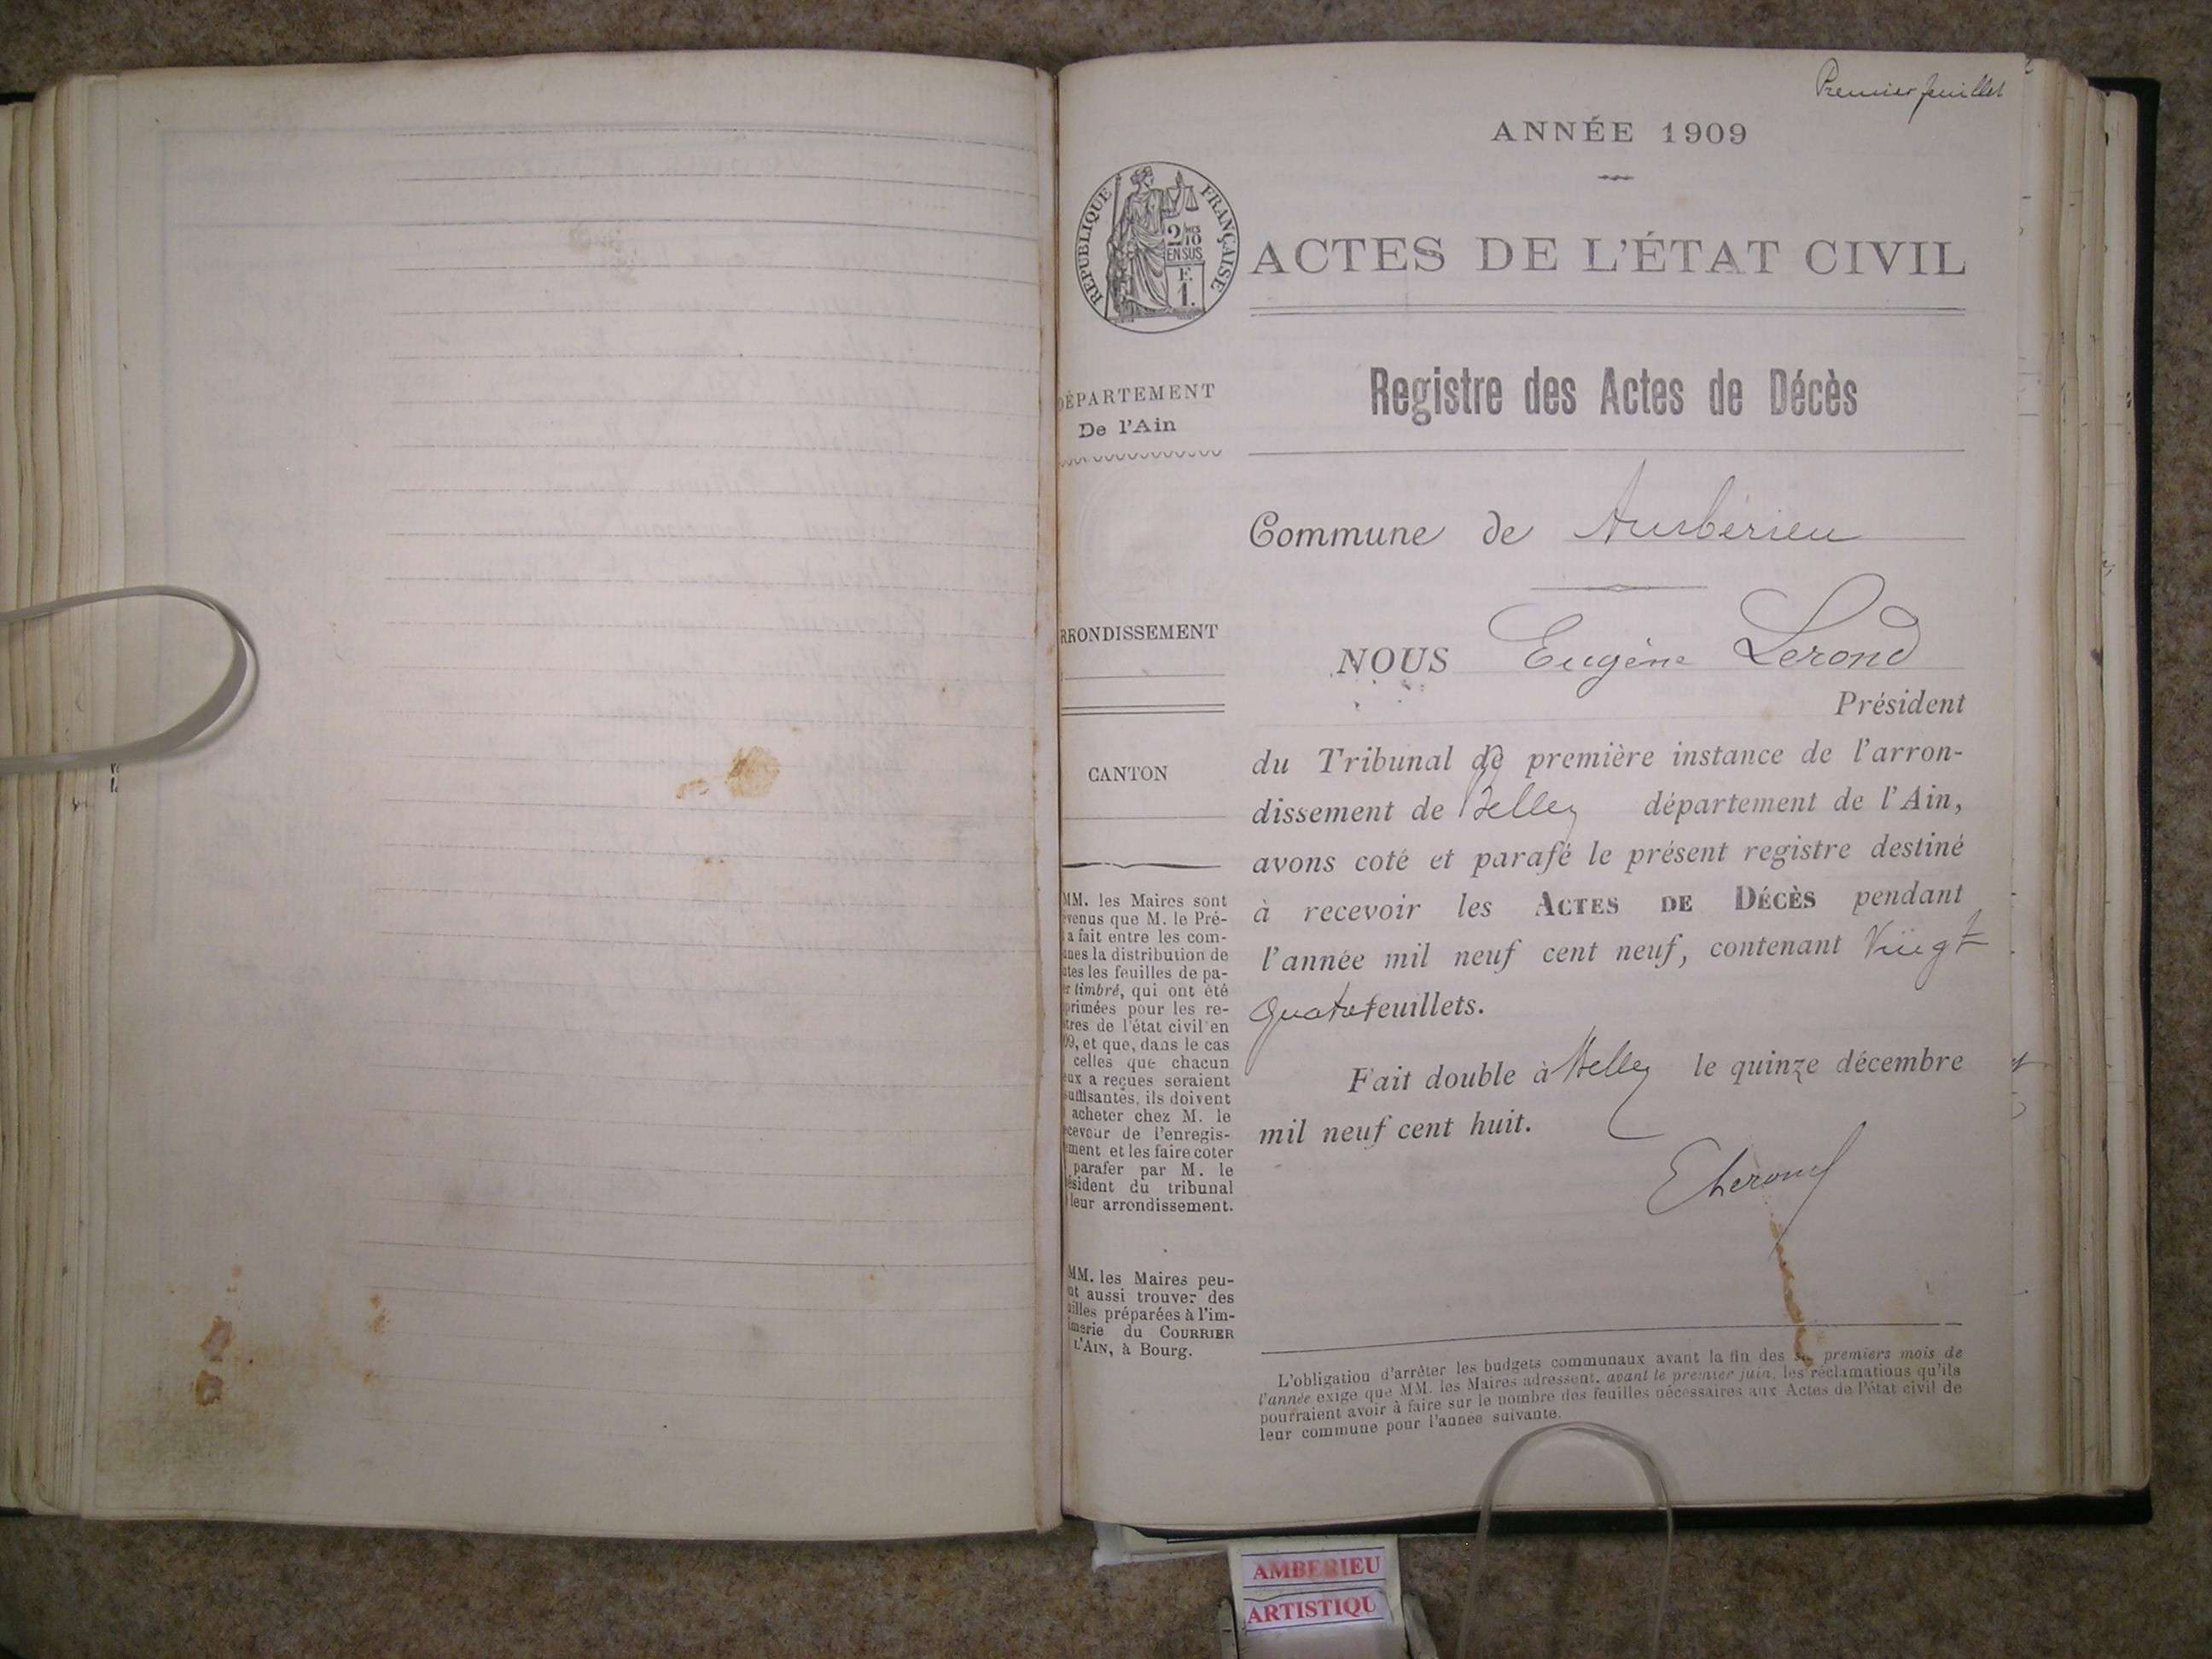 Premier feuillet
ANNÉE 1909
RÉPUBLIQUE FRANÇAISE
2/10 MES
EN SUS
F.
1.
ACTES DE L'ÉTAT CIVIL
DÉPARTEMENT
De l'Ain
Registre des Actes de Décès
Commune de Ambérieu
RRONDISSEMENT
NOUS Eugène Lerond
Président
CANTON
du Tribunal de première instance de l'arron-
dissement de Belley département de l'Ain,
avons coté et parafé le présent registre destiné
à recevoir les ACTES DE DÉCÈS pendant
l'année mil neuf cent neuf, contenant Vingt
quatre feuillets.
Fait double à Belley le quinze décembre
mil neuf cent huit.
E Lerond
MM. les Maires sont
évenus que M. le Pré-
a fait entre les com-
unes la distribution de
utes les feuilles de pa-
er timbré, qui ont été
primées pour les re-
stres de l'état civil en
09, et que, dans le cas
celles que chacun
eux a reçues seraient
suffisantes, ils doivent
acheter chez M. le
eceveur de l'enregis-
ement et les faire coter
parafer par M. le
ésident du tribunal
leur arrondissement.
MM. les Maires peu-
nt aussi trouver des
uilles préparées à l'im-
imerie du COURRIER
L'AIN, à Bourg.
L'obligation d'arrêter les budgets communaux avant la fin des premiers mois de
l'année exige que MM. les Maires adressent, avant le premier juin, les réclamations qu'ils
pourraient avoir à faire sur le nombre des feuilles nécessaires aux Actes de l'état civil de
leur commune pour l'année suivante.
AMBERIEU
ARTISTIQU